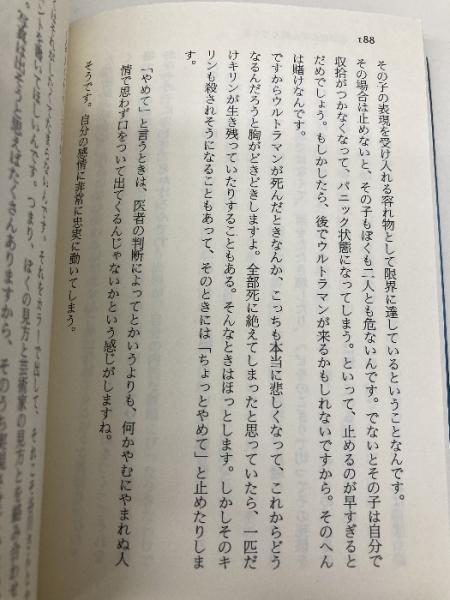 188
その子の表現を受け入れる容れ物として限界に達しているということなんです。
その場合は止めないと、その子もぼくも二人とも危ないんです。でないとその子は自分で
収拾がつかなくなって、パニック状態になってしまう。といって、止めるのが早すぎると
だめでしょう。もしかしたら、後でウルトラマンが来るかもしれないですから。そのへん
は賭けなんです。
ですからウルトラマンが死んだときなんか、こっちも本当に悲しくなって、これからどう
なるんだろうと胸がどきどきしますよ。全部死に絶えてしまったと思っていたら、一匹だ
けキリンが生き残っていたりすることもある。そんなときはほっとします。しかしそのキ
リンも殺されそうになることもあって、そのときには「ちょっとやめて」と止めたりしま
す。
「やめて」と言うときは、医者の判断によってとかいうよりも、何かやむにやまれぬ人
情で思わず口をついて出てくるんじゃないかという感じがしますね。
そうです。自分の感情に非常に忠実に動いてしまう。